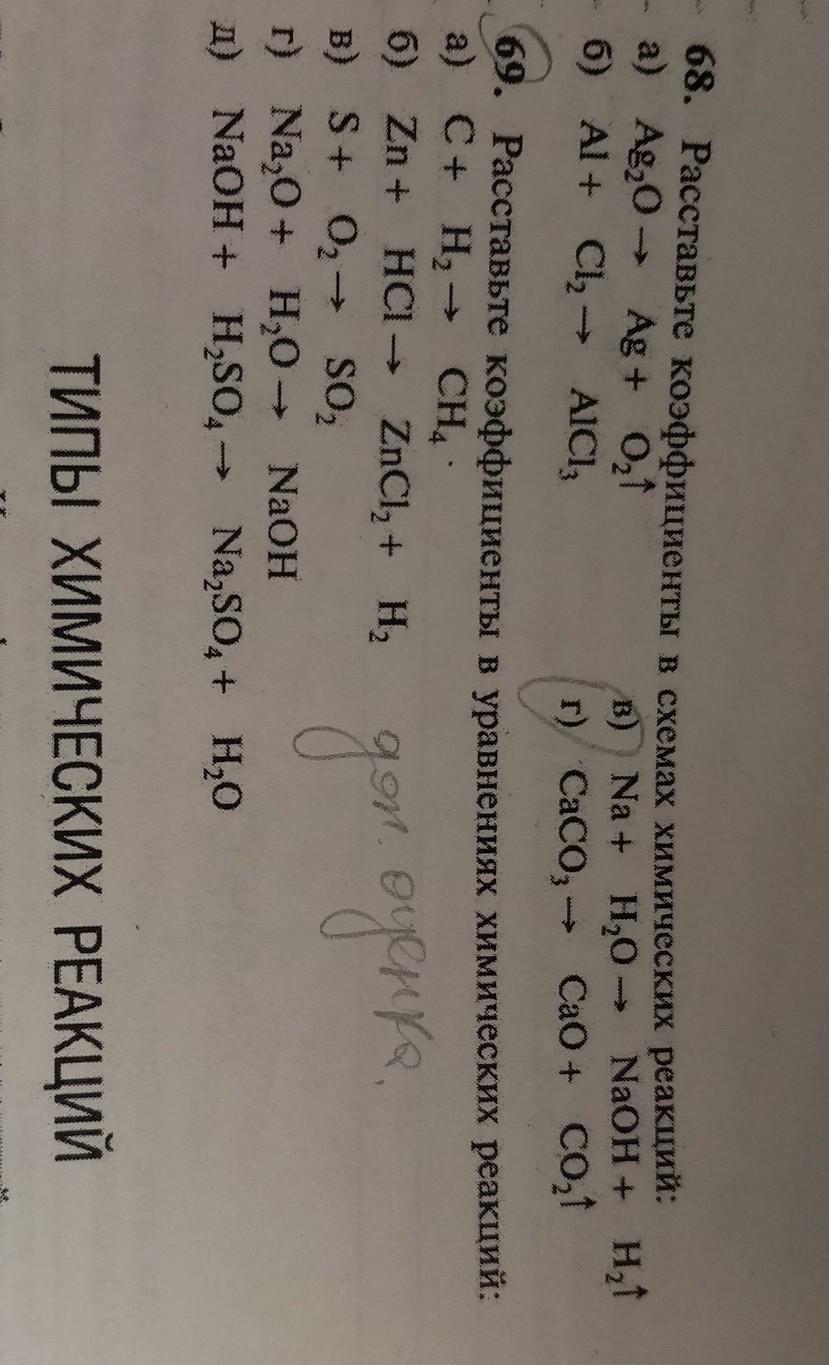 68. Расставьте коэффициенты в схемах химических реакций:
а) Ag₂O → Ag + O₂↑
в) Na + H₂O → NaOH + H₂↑
б) Al + Cl₂ → AlCl₃
г) CaCO₃ → CaO + CO₂↑
69. Расставьте коэффициенты в уравнениях химических реакций:
а) C + H₂ → CH₄.
б) Zn + HCl → ZnCl₂ + H₂
доп. оценка.
в) S + O₂ → SO₂
г) Na₂O + H₂O → NaOH
д) NaOH + H₂SO₄ → Na₂SO₄ + H₂O
ТИПЫ ХИМИЧЕСКИХ РЕАКЦИЙ